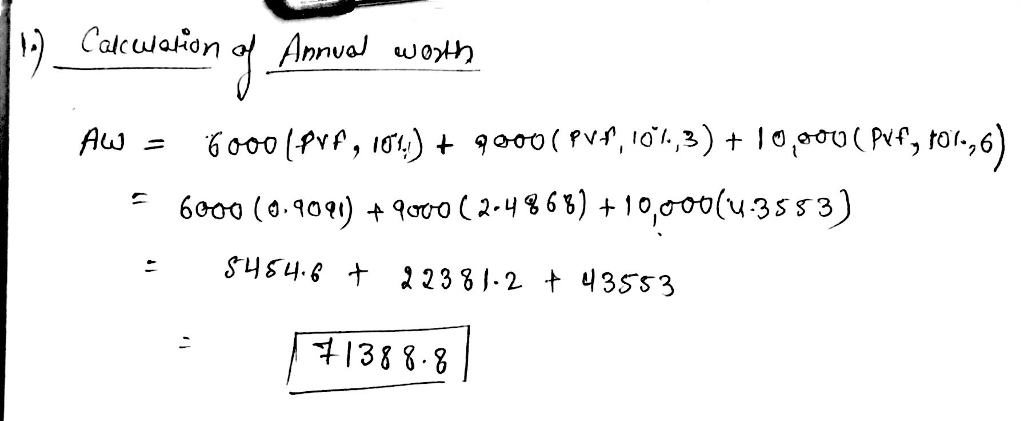 1.) Calculation of Annual worth
AW = 6000 (PVF, 10%) + 9000 (PVF, 10%, 3) + 10,000 (PVF, 10%, 6)
= 6000 (0.9091) + 9000 (2.4868) + 10,000 (4.3553)
= 5454.6 + 22381.2 + 43553
= 71388.8